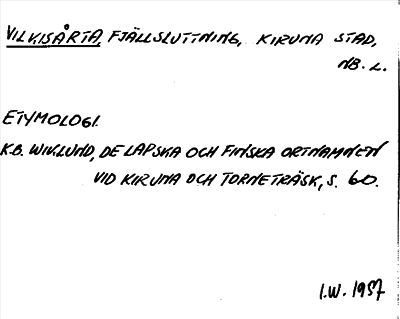 VILKISÅRTA, FJÄLLSLUTTNING, KIRUNA STAD,
NB. L.
ETYMOLOGI.
K.B. WIKLUND, DE LAPSKA OCH FINSKA ORTNAMNEN
VID KIRUNA OCH TORNETRÄSK, S. 60.
I.W. 1957